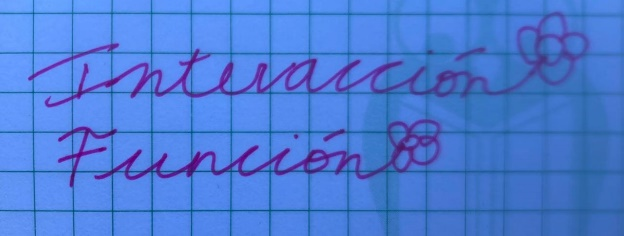 Interacción
Función